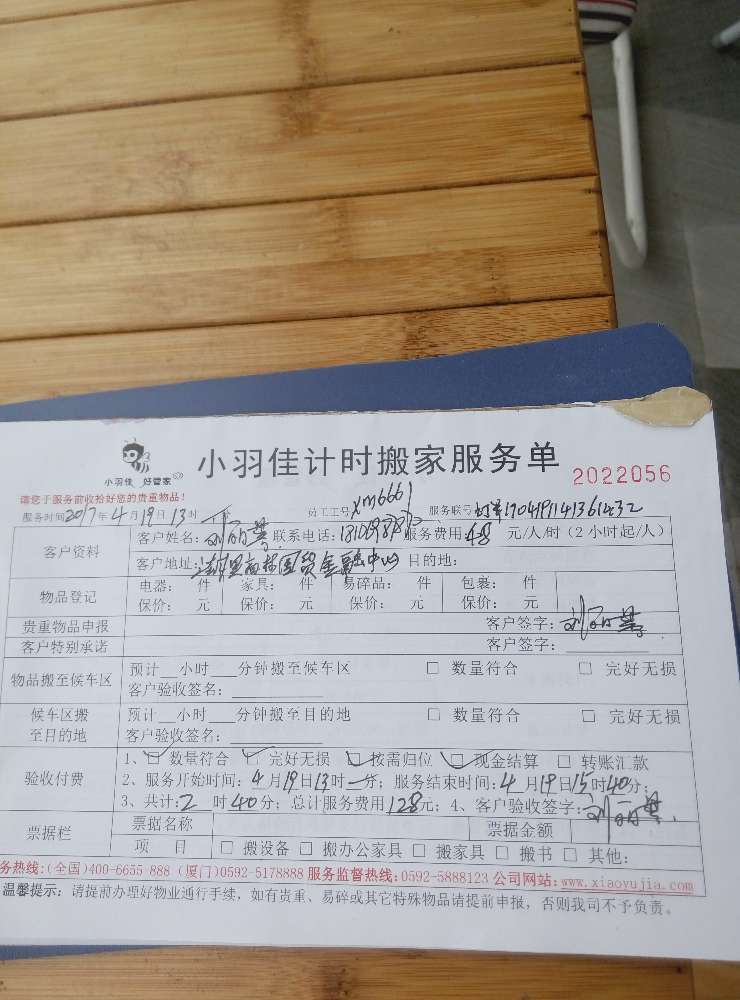 小羽佳 好管家
小羽佳计时搬家服务单 2022056
请您于服务前收拾好您的贵重物品!
服务时间2017年4月19日13时 员工工号xm6661 服务联号
客户资料 客户姓名: 联系电话: 服务费用48元/人/时(2小时起/人)
客户地址: 国贸金融中心 目的地:
物品登记 电器: 件 家具: 件 易碎品: 件 包裹: 件
保价: 元 保价: 元 保价: 元 保价: 元
贵重物品申报 客户签字:
客户特别承诺 客户签字:
物品搬至候车区 预计__小时___分钟搬至候车区 □ 数量符合 □ 完好无损
客户验收签名:
候车区搬至目的地 预计__小时___分钟搬至目的地 □ 数量符合 □ 完好无损
客户验收签名:
验收付费 1、☑ 数量符合 ☑ 完好无损 ☑ 按需归位 ☑ 现金结算 □ 转账汇款
2、服务开始时间:4月19日13时 分; 服务结束时间:4月19日15时40分;
3、共计:2时40分; 总计服务费用128元; 4、客户验收签字:
票据栏 票据名称 票据金额
项 目 □ 搬设备 □ 搬办公家具 □ 搬家具 □ 搬书 □ 其他:
务热线:(全国)400-6655-888 (厦门)0592-5178888 服务监督热线:0592-5888123 公司网站:www.xiaoyujia.com
温馨提示: 请提前办理好物业通行手续, 如有贵重、易碎或其它特殊物品请提前申报, 否则我司不予负责。